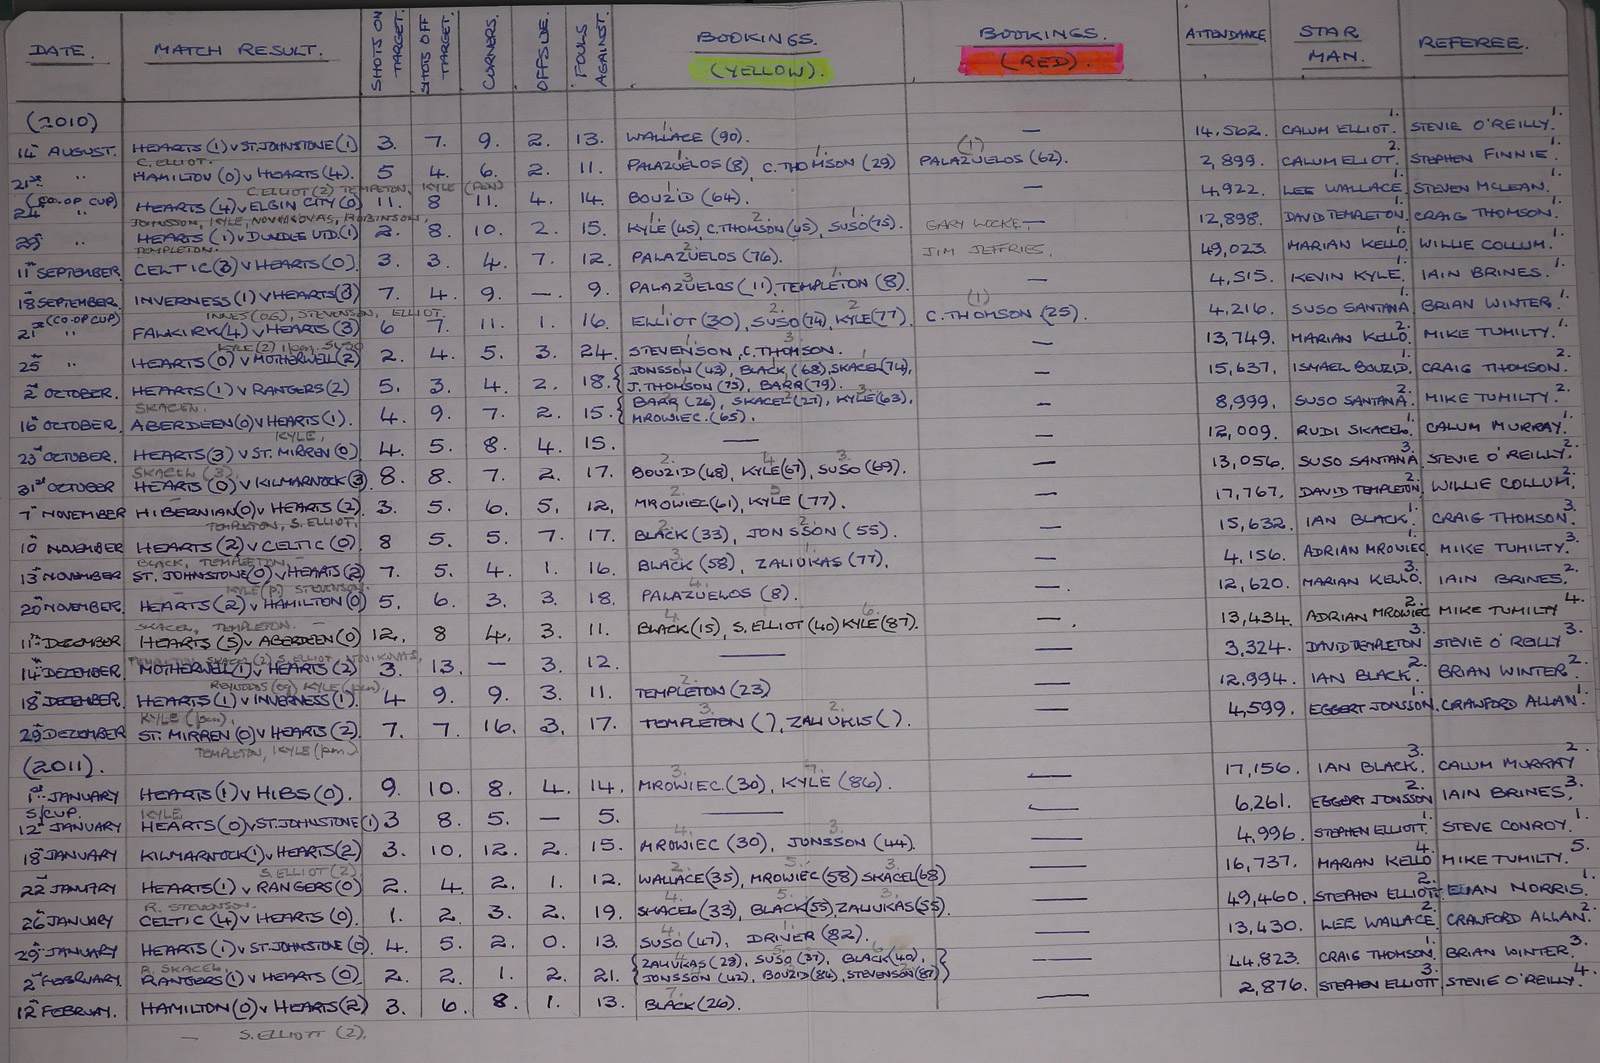 DATE. MATCH RESULT. SHOTS ON TARGET. SHOTS OFF TARGET. CORNERS. OFFSIDE. FOULS AGAINST. BOOKINGS. (YELLOW). BOOKINGS. (RED). ATTENDANCE. STAR MAN. REFEREE.
(2010)
14TH AUGUST. HEARTS (1) v ST. JOHNSTONE (1) 3. 7. 9. 2. 13. WALLACE (90). 1. — 14,562. CALUM ELLIOT. 1. STEVIE O'REILLY. 1.
C. ELLIOT.
21ST " HAMILTON (0) v HEARTS (4). 5 4. 6. 2. 11. PALAZUELOS (8), 1. C. THOMSON (29) 1. PALAZUELOS (62). (1) 2,899. CALUM ELIOT. 2. STEPHEN FINNIE. 1.
C. ELLIOT (2) TEMPLETON, KYLE (PEN)
(CO-OP CUP) 24TH " HEARTS (4) v ELGIN CITY (0) 11. 8 11. 4. 14. BOUZID (64). 1. — 4,922. LEE WALLACE. 1. STEVEN MCLEAN. 1.
JONSSON, KYLE, NOVIKOVAS, ROBINSON,
29TH " HEARTS (1) v DUNDLE UTD. (1) 2. 8. 10. 2. 15. KYLE (45) 1. C. THOMSON (45), 2. SUSO (75). 1. GARY LOCKE — 12,898. DAVID TEMPLETON. 1. CRAIG THOMSON. 1.
TEMPLETON.
11TH SEPTEMBER. CELTIC (3) v HEARTS (0). 3. 3. 4. 7. 12. PALAZUELOS (76). 2. JIM JEFFRIES. 49,023. MARIAN KELLO. 1. WILLIE COLLUM. 1.
18TH SEPTEMBER. INVERNESS (1) v HEARTS (3) 7. 4. 9. — 9. PALAZUELOS (11), 3. TEMPLETON (8). 1. — 4,515. KEVIN KYLE. 1. IAIN BRINES. 1.
INNES (OG), STEVENSON, ELLIOT.
21ST (CO-OP CUP) " FALKIRK (4) v HEARTS (3) 6 7. 11. 1. 16. ELLIOT (30), 1. SUSO (74), 2. KYLE (77). 2 C. THOMSON (25). (1) 4,216. SUSO SANTANA 1. BRIAN WINTER. 1.
KYLE (2) 1 pen. SUSO
25TH " HEARTS (0) v MOTHERWELL (2) 2. 4. 5. 3. 24. STEVENSON, C. THOMSON. 3. — 13,749. MARIAN KELLO. 2. MIKE TUMILTY. 1.
2ND OCTOBER. HEARTS (1) v RANGERS (2) 5. 3. 4. 2. 18. { JONSSON (43), BLACK (68), SKACEL (74),
J. THOMSON (75), BARR (79). — 15,637. ISMAEL BOUZID. 1. CRAIG THOMSON. 2.
SKACEL.
16TH OCTOBER. ABERDEEN (0) v HEARTS (1). 4. 9. 7. 2. 15. { BARR (26), SKACEL (27), 2. KYLE (63), 3.
MROWIEC. (65). — 8,999. SUSO SANTANA. 2. MIKE TUMILTY. 2.
KYLE,
23RD OCTOBER. HEARTS (3) v ST. MIRREN (0) 4. 5. 8. 4. 15. — — 12,009. RUDI SKACEL. 1. CALUM MURRAY. 1.
SKACEL (3).
31ST OCTOBER HEARTS (0) v KILMARNOCK (3) 8. 8. 7. 2. 17. BOUZID (48), 2. KYLE (67), 4. SUSO (69). 3. — 13,056. SUSO SANTANA 3. STEVIE O'REILLY. 2.
7TH NOVEMBER HIBERNIAN (0) v HEARTS (2). 3. 5. 6. 5. 12. MROWIEC (61), 2. KYLE (77). 5 — 17,767. DAVID TEMPLETON 2. WILLIE COLLUM. 2.
TEMPLETON, S. ELLIOT,
10TH NOVEMBER HEARTS (2) v CELTIC (0). 8 5. 5. 7. 17. BLACK (33), 2. JONSSON (55). 2. — 15,632. IAN BLACK. 1. CRAIG THOMSON. 3.
BLACK, TEMPLETON.
13TH NOVEMBER ST. JOHNSTONE (0) v HEARTS (2) 7. 5. 4. 1. 16. BLACK (58), 3. ZALIUKAS (77). 1. — 4,156. ADRIAN MROWIEC 1. MIKE TUMILTY. 3.
KYLE (p.) STEVENSON.
20TH NOVEMBER. HEARTS (2) v HAMILTON (0) 5. 6. 3. 3. 18. PALAZUELOS (8). 4. — 12,620. MARIAN KELLO. 3. IAIN BRINES. 2.
SKACEL, TEMPLETON.
11TH DECEMBER HEARTS (5) v ABERDEEN (0) 12. 8 4. 3. 11. BLACK (15), 4. S. ELLIOT (40) KYLE (87). 6. — 13,434. ADRIAN MROWIEC 2. MIKE TUMILTY 4.
TEMPLETON, SKACEL (2) S. ELLIOT, NOVIKOVAS,
14TH DECEMBER. MOTHERWELL (1) v HEARTS (2) 3. 13. — 3. 12. — — 3,324. DAVID TEMPLETON 3. STEVIE O'REILLY 3.
REYNOLDS (og) KYLE (pen)
18TH DECEMBER. HEARTS (1) v INVERNESS (1). 4 9. 9. 3. 11. TEMPLETON (23) 2. — 12,994. IAN BLACK. 2. BRIAN WINTER. 2.
KYLE (pen),
29TH DECEMBER ST. MIRREN (0) v HEARTS (2). 7. 7. 16. 3. 17. TEMPLETON ( ), 3. ZALIUKIS ( ). 2. — 4,599. EGGERT JONSSON. 1. CRAWFORD ALLAN. 1.
TEMPLETON, KYLE (pen).
(2011).
1ST JANUARY HEARTS (1) v HIBS (0). 9. 10. 8. 4. 14. MROWIEC. (30), 3. KYLE (86). 7. — 17,156. IAN BLACK. 3. CALUM MURRAY 2.
KYLE
S/CUP. 12TH JANUARY HEARTS (0) v ST. JOHNSTONE (1) 3 8. 5. — 5. — — 6,261. EGGERT JONSSON 2. IAIN BRINES. 3.
18TH JANUARY KILMARNOCK (1) v HEARTS (2) 3. 10. 12. 2. 15. MROWIEC (30), 4. JONSSON (44). 3. — 4,996. STEPHEN ELLIOTT. 1. STEVE CONROY. 1.
S. ELLIOT (2).
22ND JANUARY HEARTS (1) v RANGERS (0) 2. 4. 2. 1. 12. WALLACE (35), 2. MROWIEC (58) 5. SKACEL (68) 3. — 16,737. MARIAN KELLO 4. MIKE TUMILTY. 5.
R. STEVENSON.
26TH JANUARY CELTIC (4) v HEARTS (0). 1. 2. 3. 2. 19. SKACEL (33), 4. BLACK (55), 5. ZALIUKAS (55). 3. — 49,460. STEPHEN ELLIOTT 2. EUAN NORRIS. 1.
29TH JANUARY HEARTS (1) v ST. JOHNSTONE (0). 4. 5. 2. 0. 13. SUSO (47), 4. DRIVER (82). 1. — 13,430. LEE WALLACE. 2. CRAWFORD ALLAN. 2.
R. SKACEL,
2ND FEBRUARY. RANGERS (1) v HEARTS (0). 2. 2. 1. 2. 21. { ZALIUKAS (28), SUSO (37), 5. BLACK (40), 6 }
JONSSON (42), BOUZID (84), STEVENSON (87) — 44,823. CRAIG THOMSON. 1. BRIAN WINTER. 3.
12TH FEBRUAY. HAMILTON (0) v HEARTS (2) 3. 6. 8. 1. 13. BLACK (26). 7. — 2,876. STEPHEN ELLIOTT 3. STEVIE O'REILLY. 4.
— S. ELLIOTT (2).